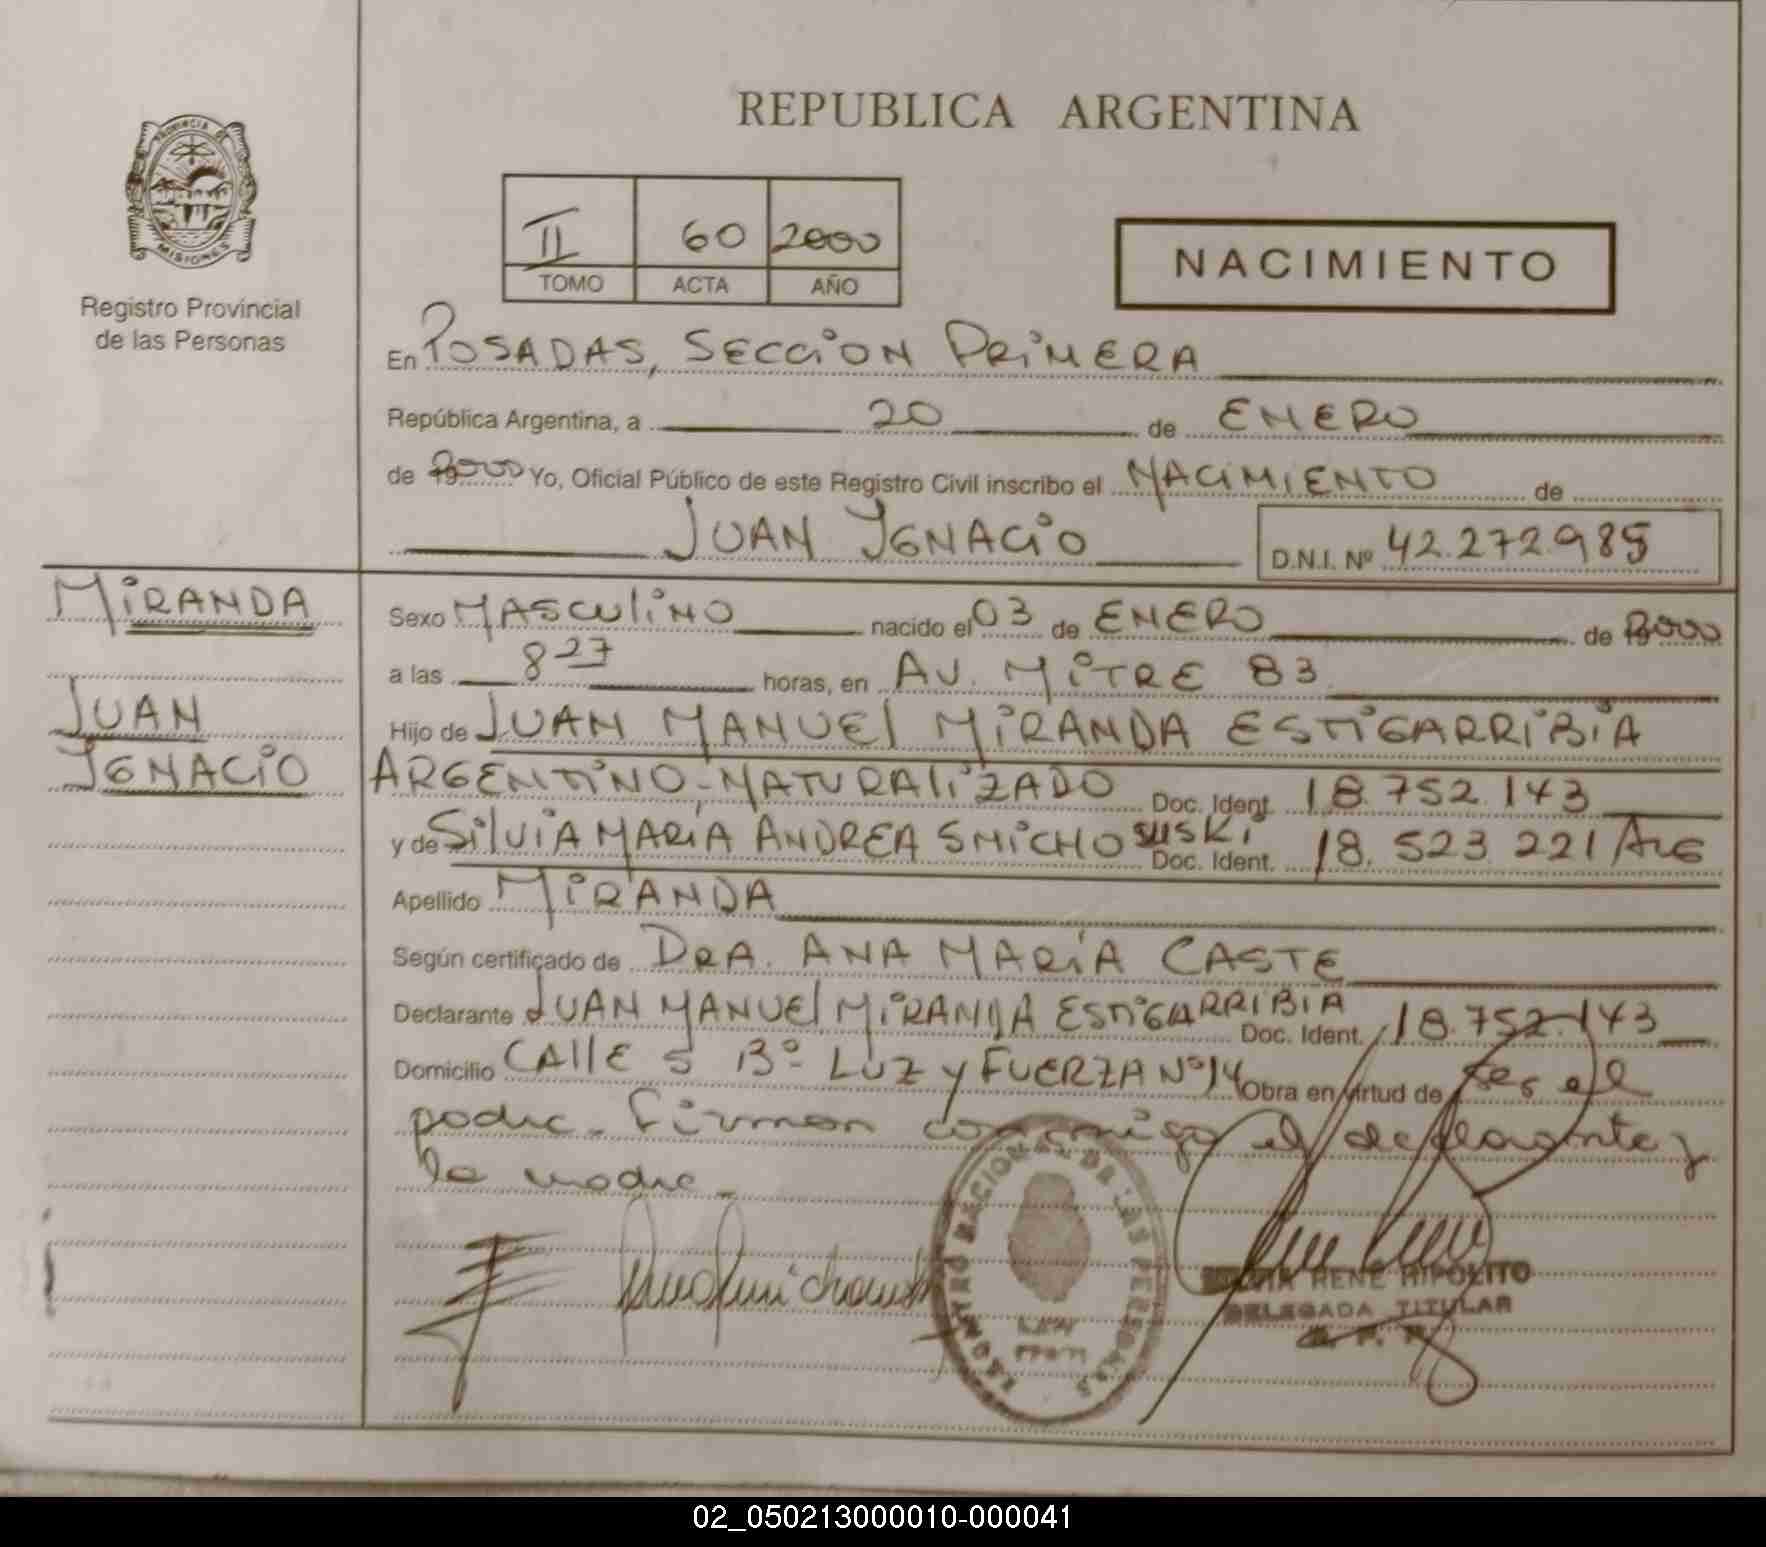 REPUBLICA ARGENTINA
PROVINCIA DE
MISIONES
Registro Provincial
de las Personas
II 60 2000
TOMO ACTA AÑO
NACIMIENTO
En POSADAS, SECCION PRIMERA
República Argentina, a 20 de ENERO
de 2000 Yo, Oficial Público de este Registro Civil inscribo el NACIMIENTO de
JUAN IGNACIO D.N.I. Nº 42.272.985
MIRANDA
JUAN
IGNACIO
Sexo MASCULINO nacido el 03 de ENERO de 2000
a las 8 27 horas, en AV. MITRE 83
Hijo de JUAN MANUEL MIRANDA ESTIGARRIBIA
ARGENTINO-NATURALIZADO Doc. Ident. 18.752.143
y de SILVIA MARIA ANDREA SMICHOWSKI Doc. Ident. 18.523.221 ARG
Apellido MIRANDA
Según certificado de DRA. ANA MARÍA CASTE
Declarante JUAN MANUEL MIRANDA ESTIGARRIBIA Doc. Ident. 18.752.143
Domicilio CALLE 5 Bº LUZ y FUERZA Nº 14 Obra en virtud de ser el
padre. Firman conmigo el declarante y
la madre.
REGISTRO NACIONAL DE LAS PERSONAS
SILVIA RENE HIPOLITO
DELEGADA TITULAR
02_050213000010-000041